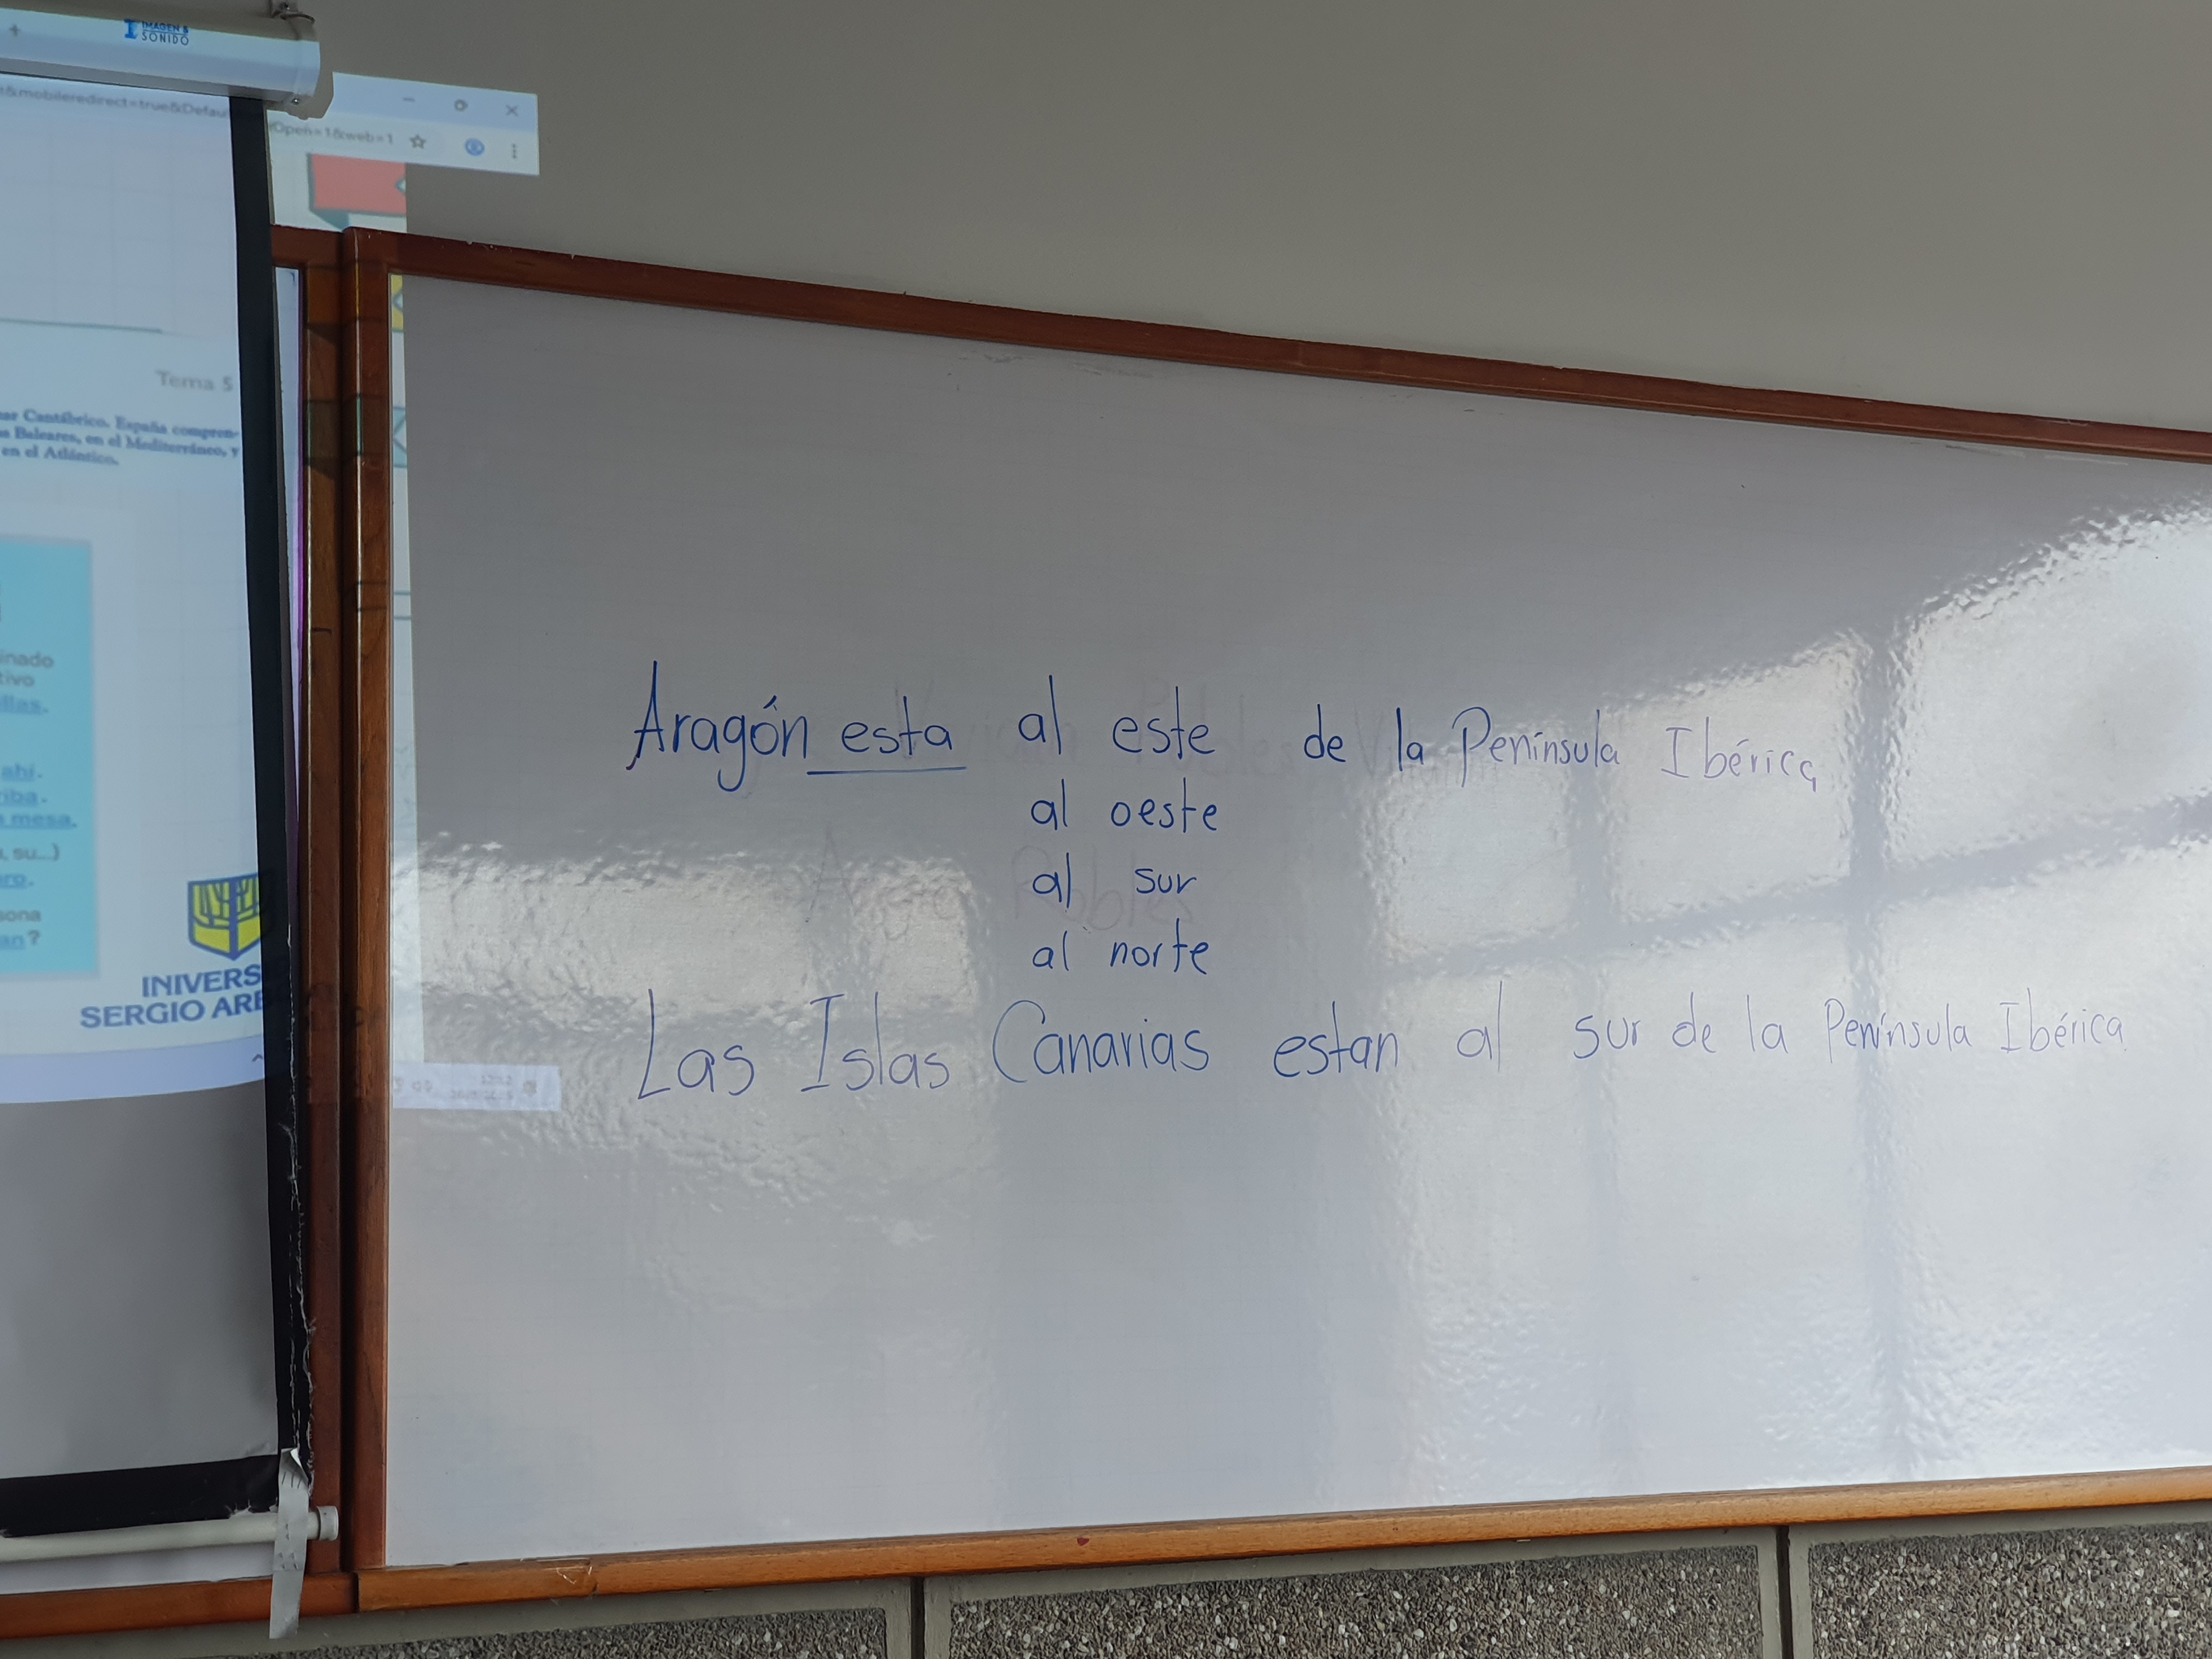 IMAGEN &
SONIDO
&mobileredirect=true&Defau
Open=1&web=1
Tema 5
mar Cantábrico. España compren-
Baleares, en el Mediterráneo, y
en el Atlántico.
inado
tivo
llas.
ahí.
riba.
mesa.
, su...)
ro.
sona
an?
INIVERS
SERGIO ARB
Aragón esta al este de la Península Ibérica
al oeste
al sur
al norte
Las Islas Canarias estan al sur de la Península Ibérica